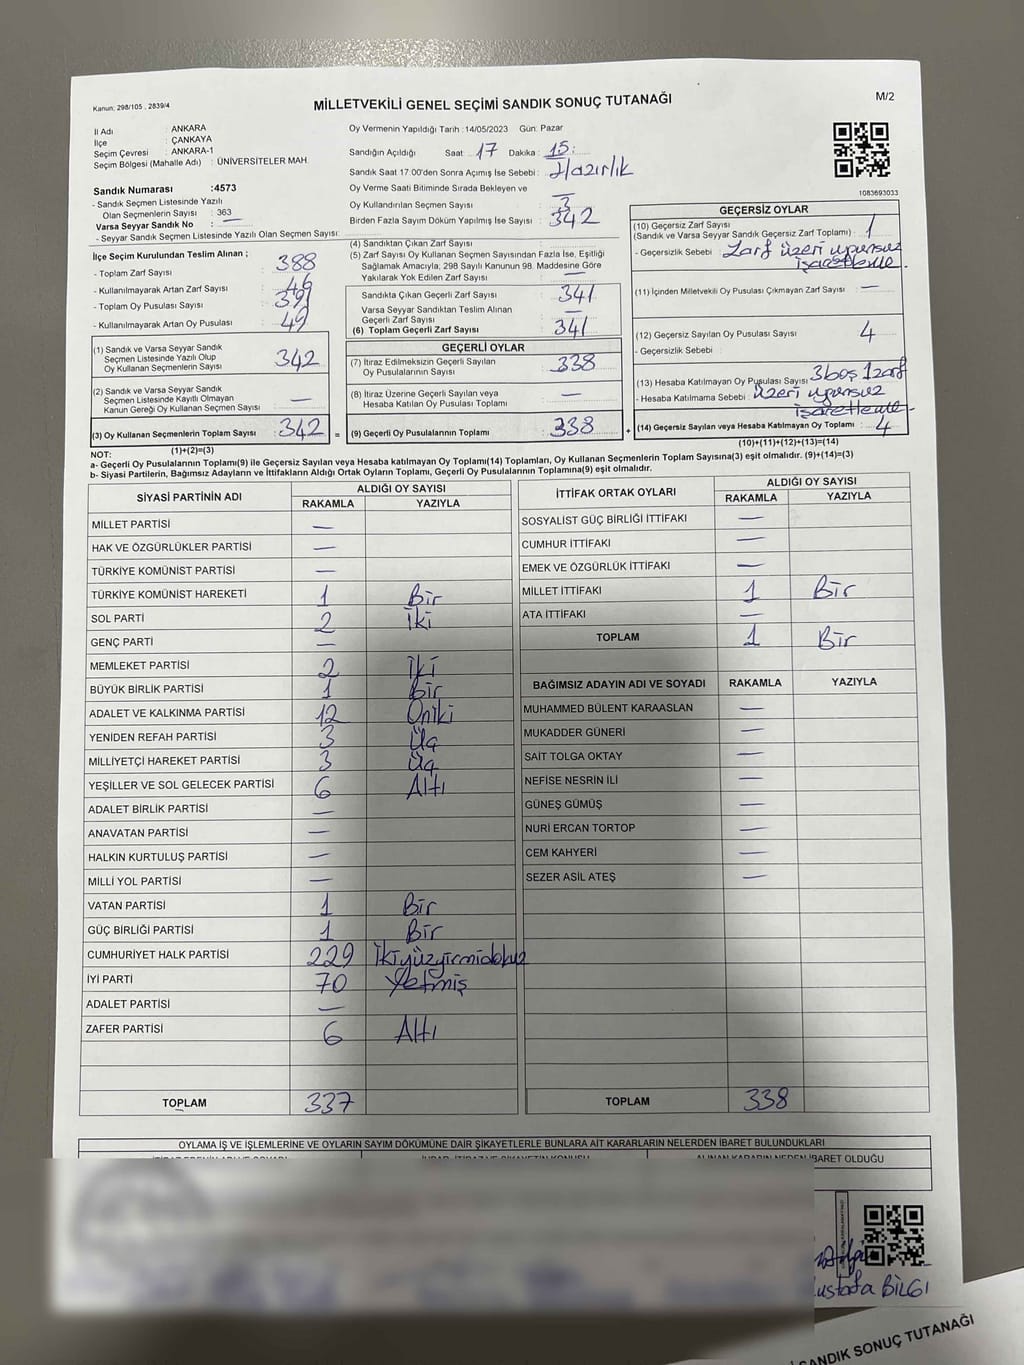 Kanun; 298/105 , 2839/4
MİLLETVEKİLİ GENEL SEÇİMİ SANDIK SONUÇ TUTANAĞI
M/2
İl Adı : ANKARA
İlçe : ÇANKAYA
Seçim Çevresi : ANKARA-1
Seçim Bölgesi (Mahalle Adı) : ÜNİVERSİTELER MAH.
Sandık Numarası :4573
- Sandık Seçmen Listesinde Yazılı
Olan Seçmenlerin Sayısı : 363
Varsa Seyyar Sandık No : —
- Seyyar Sandık Seçmen Listesinde Yazılı Olan Seçmen Sayısı:
Oy Vermenin Yapıldığı Tarih :14/05/2023 Gün: Pazar
Sandığın Açıldığı Saat: 17 Dakika : 15:
Sandık Saat 17.00'den Sonra Açımış İse Sebebi : Hazırlık
Oy Verme Saati Bitiminde Sırada Bekleyen ve —
Oy Kullandırılan Seçmen Sayısı : 3
Birden Fazla Sayım Döküm Yapılmış İse Sayısı : 342
1083693033
İlçe Seçim Kurulundan Teslim Alınan ;
- Toplam Zarf Sayısı : 388
- Kullanılmayarak Artan Zarf Sayısı : 46
- Toplam Oy Pusulası Sayısı : 391
- Kullanılmayarak Artan Oy Pusulası : 49
(1) Sandık ve Varsa Seyyar Sandık
Seçmen Listesinde Yazılı Olup
Oy Kullanan Seçmenlerin Sayısı : 342
(2) Sandık ve Varsa Seyyar Sandık
Seçmen Listesinde Kayıtlı Olmayan
Kanun Gereği Oy Kullanan Seçmen Sayısı : —
(3) Oy Kullanan Seçmenlerin Toplam Sayısı : 342 =
(1)+(2)=(3)
(4) Sandıktan Çıkan Zarf Sayısı :
(5) Zarf Sayısı Oy Kullanan Seçmen Sayısından Fazla İse, Eşitliği
Sağlamak Amacıyla, 298 Sayılı Kanunun 98. Maddesine Göre
Yakılarak Yok Edilen Zarf Sayısı : —
Sandıkta Çıkan Geçerli Zarf Sayısı : 341
Varsa Seyyar Sandıktan Teslim Alınan
Geçerli Zarf Sayısı : —
(6) Toplam Geçerli Zarf Sayısı : 341
GEÇERLİ OYLAR
(7) İtiraz Edilmeksizin Geçerli Sayılan
Oy Pusulalarının Sayısı : 338
(8) İtiraz Üzerine Geçerli Sayılan veya
Hesaba Katılan Oy Pusulası Toplamı : —
(9) Geçerli Oy Pusulalarının Toplamı : 338 +
GEÇERSİZ OYLAR
(10) Geçersiz Zarf Sayısı
(Sandık ve Varsa Seyyar Sandık Geçersiz Zarf Toplamı) : 1
- Geçersizlik Sebebi : Zarf üzeri uyarsız
işaretleme.
(11) İçinden Milletvekili Oy Pusulası Çıkmayan Zarf Sayısı : —
(12) Geçersiz Sayılan Oy Pusulası Sayısı : 4
- Geçersizlik Sebebi :
(13) Hesaba Katılmayan Oy Pusulası Sayısı : 3 boş 1 zarf
- Hesaba Katılmama Sebebi : üzeri uyarsız
işaretleme
(14) Geçersiz Sayılan veya Hesaba Katılmayan Oy Toplamı : 4
(10)+(11)+(12)+(13)=(14)
NOT:
a- Geçerli Oy Pusulalarının Toplamı(9) ile Geçersiz Sayılan veya Hesaba katılmayan Oy Toplamı(14) Toplamları, Oy Kullanan Seçmenlerin Toplam Sayısına(3) eşit olmalıdır. (9)+(14)=(3)
b- Siyasi Partilerin, Bağımsız Adayların ve İttifakların Aldığı Ortak Oyların Toplamı, Geçerli Oy Pusulalarının Toplamına(9) eşit olmalıdır.
SİYASİ PARTİNİN ADI ALDIĞI OY SAYISI
RAKAMLA YAZIYLA
MİLLET PARTİSİ —
HAK VE ÖZGÜRLÜKLER PARTİSİ —
TÜRKİYE KOMÜNİST PARTİSİ —
TÜRKİYE KOMÜNİST HAREKETİ 1 Bir
SOL PARTİ 2 İki
GENÇ PARTİ —
MEMLEKET PARTİSİ 2 İki
BÜYÜK BİRLİK PARTİSİ 1 Bir
ADALET VE KALKINMA PARTİSİ 12 Oniki
YENİDEN REFAH PARTİSİ 3 Üç
MİLLİYETÇİ HAREKET PARTİSİ 3 Üç
YEŞİLLER VE SOL GELECEK PARTİSİ 6 Altı
ADALET BİRLİK PARTİSİ —
ANAVATAN PARTİSİ —
HALKIN KURTULUŞ PARTİSİ —
MİLLİ YOL PARTİSİ —
VATAN PARTİSİ 1 Bir
GÜÇ BİRLİĞİ PARTİSİ 1 Bir
CUMHURİYET HALK PARTİSİ 229 İkiyüzyirmidokuz
İYİ PARTİ 70 Yetmiş
ADALET PARTİSİ —
ZAFER PARTİSİ 6 Altı
TOPLAM 337
İTTİFAK ORTAK OYLARI ALDIĞI OY SAYISI
RAKAMLA YAZIYLA
SOSYALİST GÜÇ BİRLİĞİ İTTİFAKI —
CUMHUR İTTİFAKI —
EMEK VE ÖZGÜRLÜK İTTİFAKI —
MİLLET İTTİFAKI 1 Bir
ATA İTTİFAKI —
TOPLAM 1 Bir
BAĞIMSIZ ADAYIN ADI VE SOYADI RAKAMLA YAZIYLA
MUHAMMED BÜLENT KARAASLAN —
MUKADDER GÜNERİ —
SAİT TOLGA OKTAY —
NEFİSE NESRİN İLİ —
GÜNEŞ GÜMÜŞ —
NURİ ERCAN TORTOP —
CEM KAHYERİ —
SEZER ASİL ATEŞ —
TOPLAM 338
OYLAMA İŞ VE İŞLEMLERİNE VE OYLARIN SAYIM DÖKÜMÜNE DAİR ŞİKAYETLERLE BUNLARA AİT KARARLARIN NELERDEN İBARET BULUNDUKLARI
ALINAN KARARIN NEDEN İBARET OLDUĞU
ustafa BİLGİ
SANDIK SONUÇ TUTANAĞI